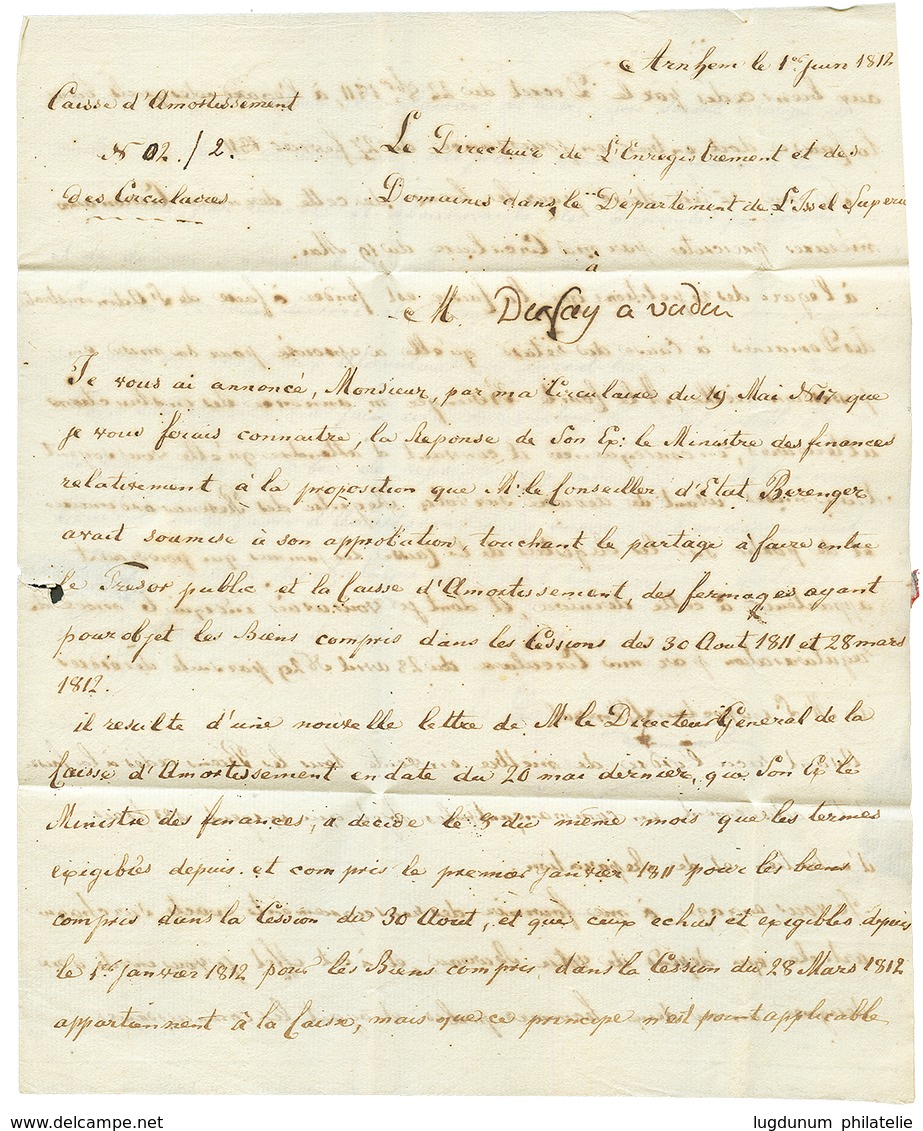 Arnhem le 1er Juin 1812
Caisse d'Amortissement
N 02./2.
des Circulaires
Le Directeur de L'Enregistrement et des
Domaines dans le Département de L'Issel Superi
à
M. Dufay a
Je vous ai annoncé, Monsieur, par ma Circulaire du 19 Mai N 17 que
je vous ferais connaitre, la Reponse de Son Ex: le Ministre des finances
relativement à la proposition que Mr. le Conseiller d'Etat Berenger
avait soumise à son approbation, touchant le partage à faire entre
le Tresor public et la Caisse d'Amortissement, des fermages ayant
pour objet les Biens compris dans les Cessions des 30 Aout 1811 et 28 mars
1812.
il resulte d'une nouvelle lettre de Mr. le Directeur General de la
Caisse d'Amortissement en date du 20 mai dernier, que Son Ex le
Ministre des finances, a decidé le 8 du même mois que les termes
exigibles depuis et compris le premier janvier 1811 pour les biens
compris dans la Cession du 30 Aout, et que ceux echus et exigibles depuis
le 1er Janvier 1812 pour les Biens compris dans la Cession du 28 Mars 1812
appartiennent à la Caisse, mais que ce principe n'est point applicable
www.delcampe.net
lugdunum philatelie